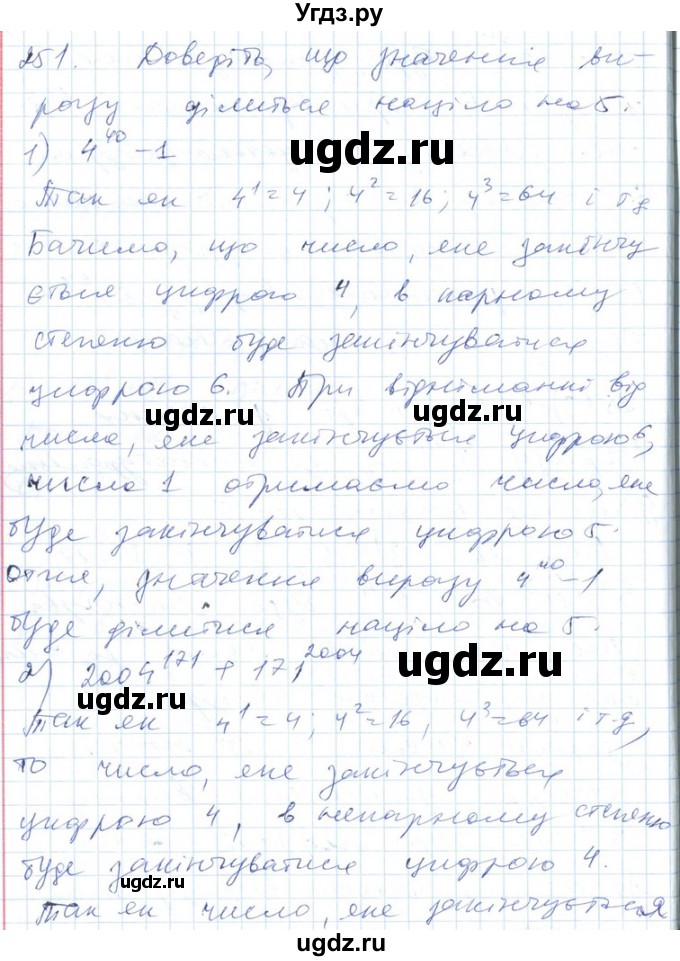 Угдз.ру
251. Доведіть, що значення ви-
разу ділиться націло на 5.
1) 4⁴⁰ - 1
ugdz.ru
Так як 4¹=4; 4²=16; 4³=64 і т.д
Бачимо, що число, яке закінчу
ється цифрою 4, в парному
степеню буде закінчуватися
цифрою 6. При відніманні від
ugdz.ru
ugdz.ru
числа, яке закінчується цифрою 6,
числа 1 отримаємо число, яке
буде закінчуватися цифрою 5.
Отже, значення виразу 4⁴⁰-1
буде ділитися націло на 5.
2) 2004¹⁷¹ + 171²⁰⁰⁴
ugdz.ru
ugdz.ru
Так як 4¹=4; 4²=16, 4³=64 і т.д,
то число, яке закінчується
цифрою 4, в непарному степеню
буде закінчуватися цифрою 4.
ugdz.ru
ugdz.ru
Так як число, яке закінчується
ugdz.ru